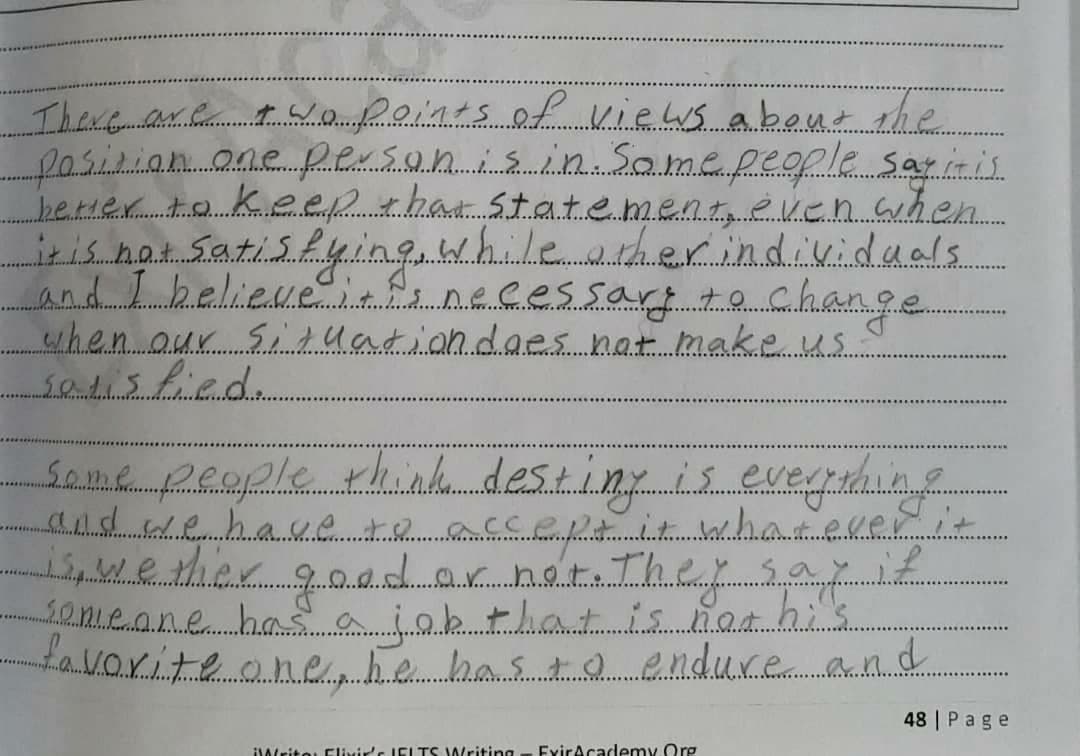 There are two points of views about the
position one person is in. Some people say it is
better to keep that statement, even when
it is not satisfying, while other individuals
and I believe it is necessary to change
when our situation does not make us
satisfied.
Some people think destiny is everything
and we have to accept it whatever it
is, wether good or not. They say if
someone has a job that is not his
favorite one, he has to endure and
48 | Page
iWrite: Elixir's IELTS Writing – ExirAcademy.Org